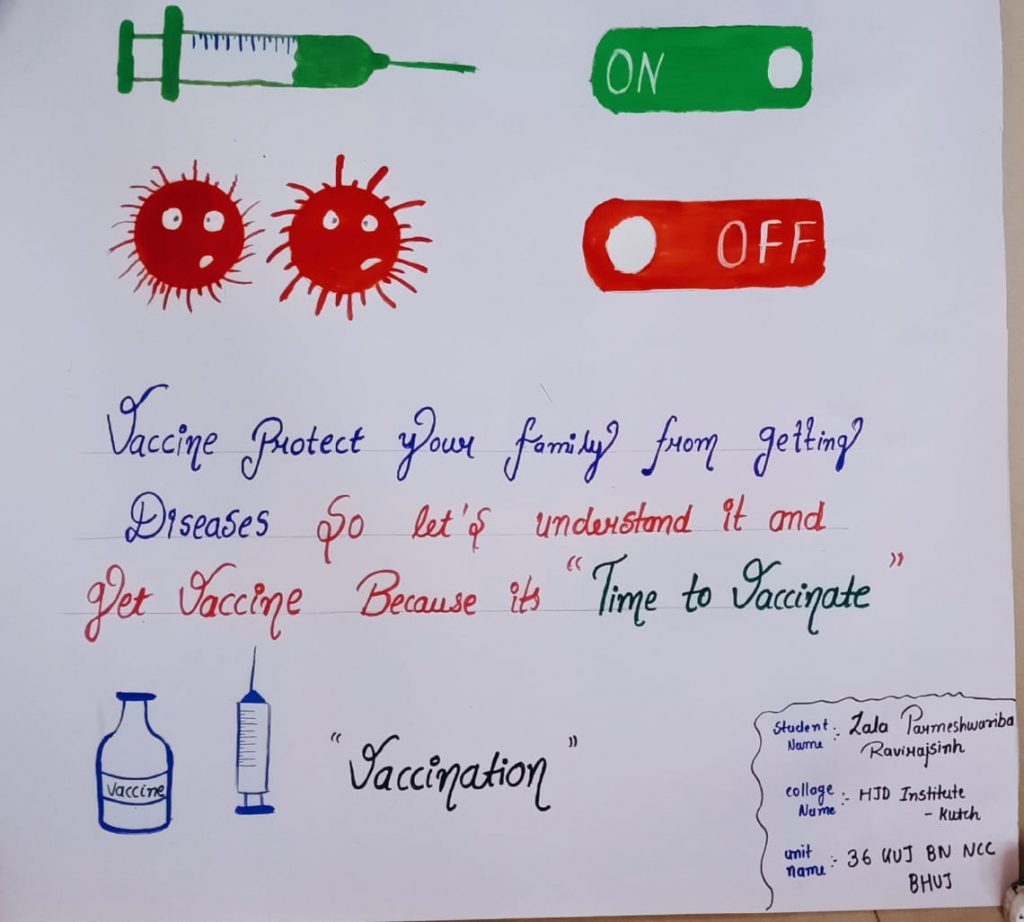 ON
OFF
Vaccine Protect your family from getting
Diseases So let's understand it and
Get Vaccine Because its "Time to Vaccinate"
vaccine
"Vaccination"
Student Name :- Zala Parmeshwariba
Ravirajsinh
collage Name :- HJD Institute
- Kutch
unit name :- 36 GUJ BN NCC
BHUJ